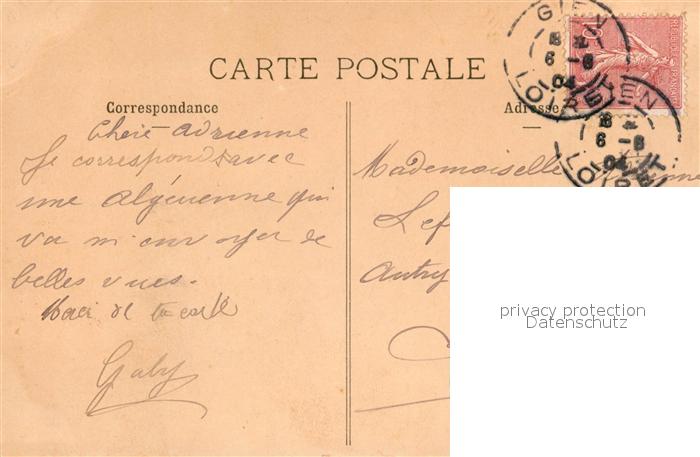 GIEN
6 -8
04
LOIRET
REPUBLIQUE FRANCAISE
10
CARTE POSTALE
Correspondance
Adresse
GIEN
6 -8
04
LOIRET
Cheie Adrienne
Je correspond avec
une algérienne qui
va m'envoyer de
belles vues.
de ta carte
Gaby
Mademoiselle
Lef
Autry
privacy protection
Datenschutz